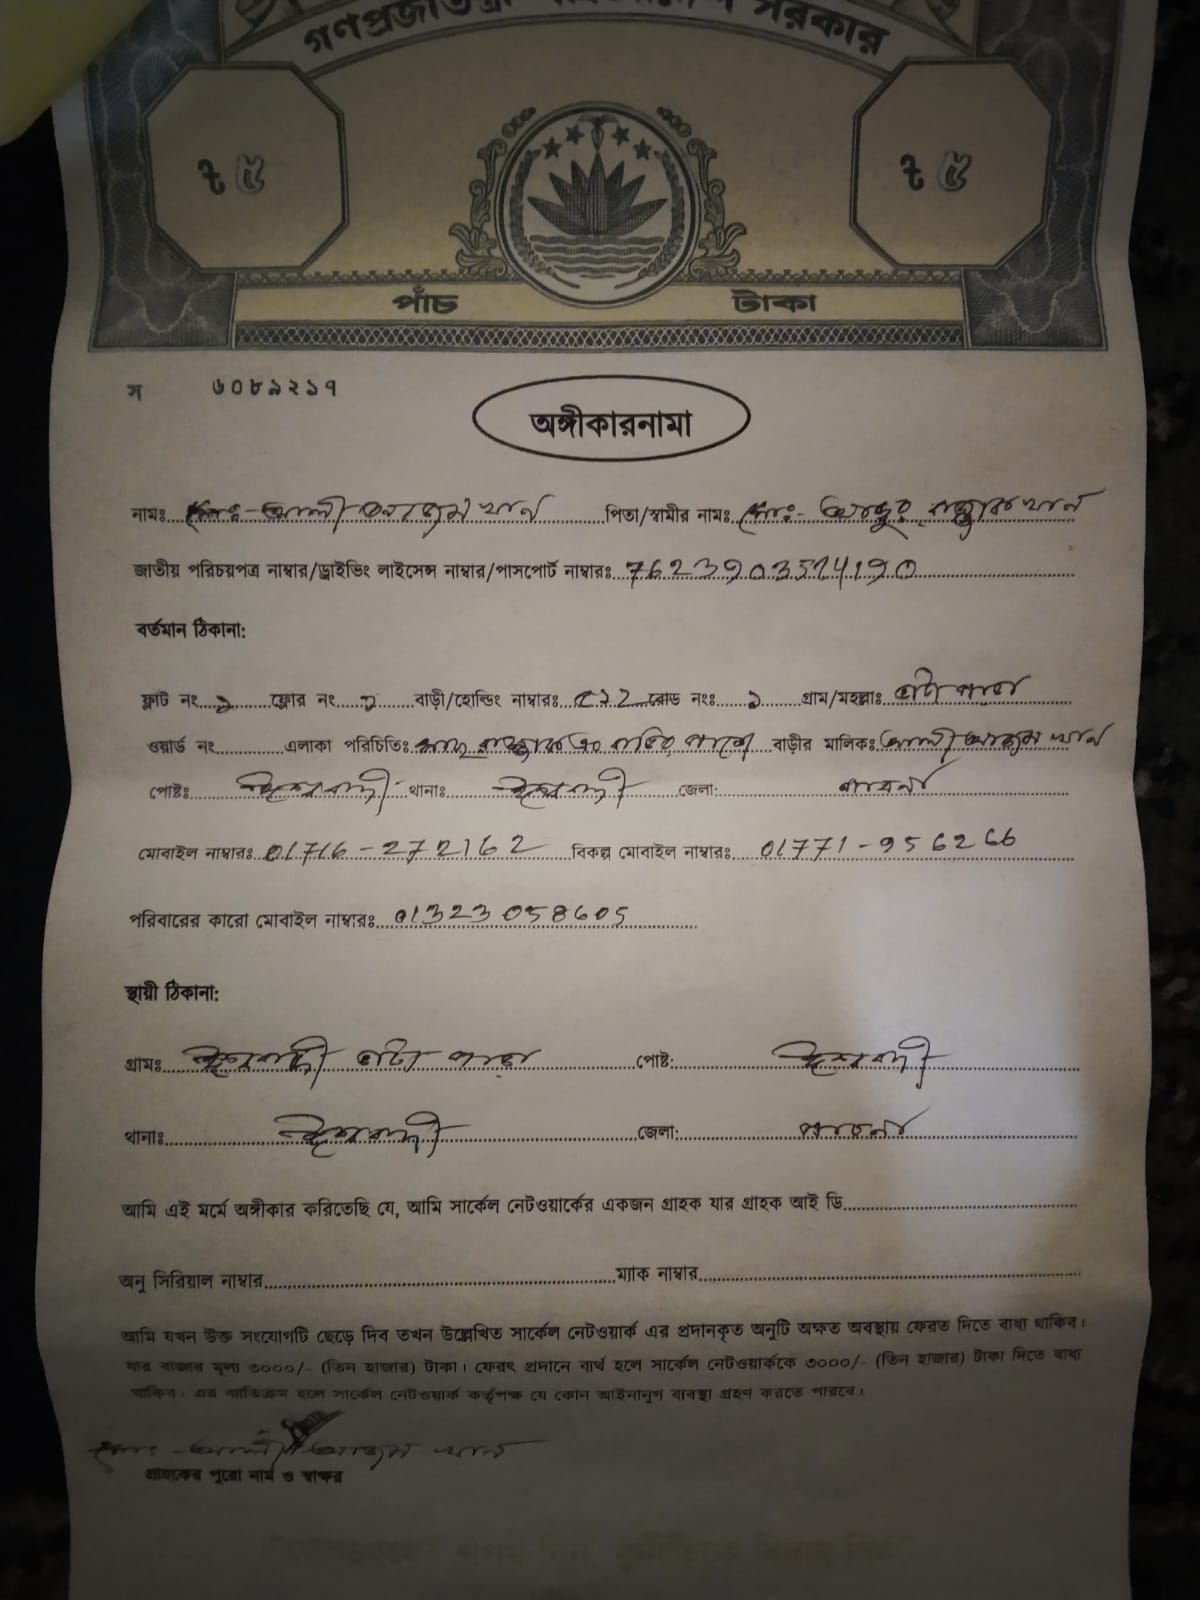 গণপ্রজাতন্ত্রী বাংলাদেশ সরকার
৳ ৫ ৳ ৫
পাঁচ টাকা
স ৬০৮৯২১৭
অঙ্গীকারনামা
নামঃ মোঃ-আলী আজম খান পিতা/স্বামীর নামঃ মোঃ- আব্দুর রাজ্জাক খান
জাতীয় পরিচয়পত্র নাম্বার/ড্রাইভিং লাইসেন্স নাম্বার/পাসপোর্ট নাম্বারঃ 7623903524190
বর্তমান ঠিকানা:
ফ্লাট নং ফ্লোর নং বাড়ী/হোল্ডিং নাম্বারঃ রোড নংঃ গ্রাম/মহল্লাঃ পাড়া
ওয়ার্ড নং এলাকা পরিচিতিঃ বাড়ীর মালিকঃ আলী আজম খান
পোষ্টঃ ঈশ্বরদী থানাঃ ঈশ্বরদী জেলা: পাবনা
মোবাইল নাম্বারঃ 01716-272162 বিকল্প মোবাইল নাম্বারঃ 01771-956266
পরিবারের কারো মোবাইল নাম্বারঃ 01323058605
স্থায়ী ঠিকানা:
গ্রামঃ ঈশ্বরদী পাড়া পোষ্ট: ঈশ্বরদী
থানাঃ ঈশ্বরদী জেলা: পাবনা
আমি এই মর্মে অঙ্গীকার করিতেছি যে, আমি সার্কেল নেটওয়ার্কের একজন গ্রাহক যার গ্রাহক আই ডি
অনু সিরিয়াল নাম্বার ম্যাক নাম্বার
আমি যখন উক্ত সংযোগটি ছেড়ে দিব তখন উল্লেখিত সার্কেল নেটওয়ার্ক এর প্রদানকৃত অনুটি অক্ষত অবস্থায় ফেরত দিতে বাধ্য থাকিব।
যার বাজার মূল্য ৩০০০/- (তিন হাজার) টাকা। ফেরৎ প্রদানে ব্যর্থ হলে সার্কেল নেটওয়ার্ককে ৩০০০/- (তিন হাজার) টাকা দিতে বাধ্য
থাকিব। এর ব্যতিক্রম হলে সার্কেল নেটওয়ার্ক কর্তৃপক্ষ যে কোন আইনানুগ ব্যবস্থা গ্রহণ করতে পারবে।
মোঃ-আলী আজম খান
গ্রাহকের পুরো নাম ও স্বাক্ষর